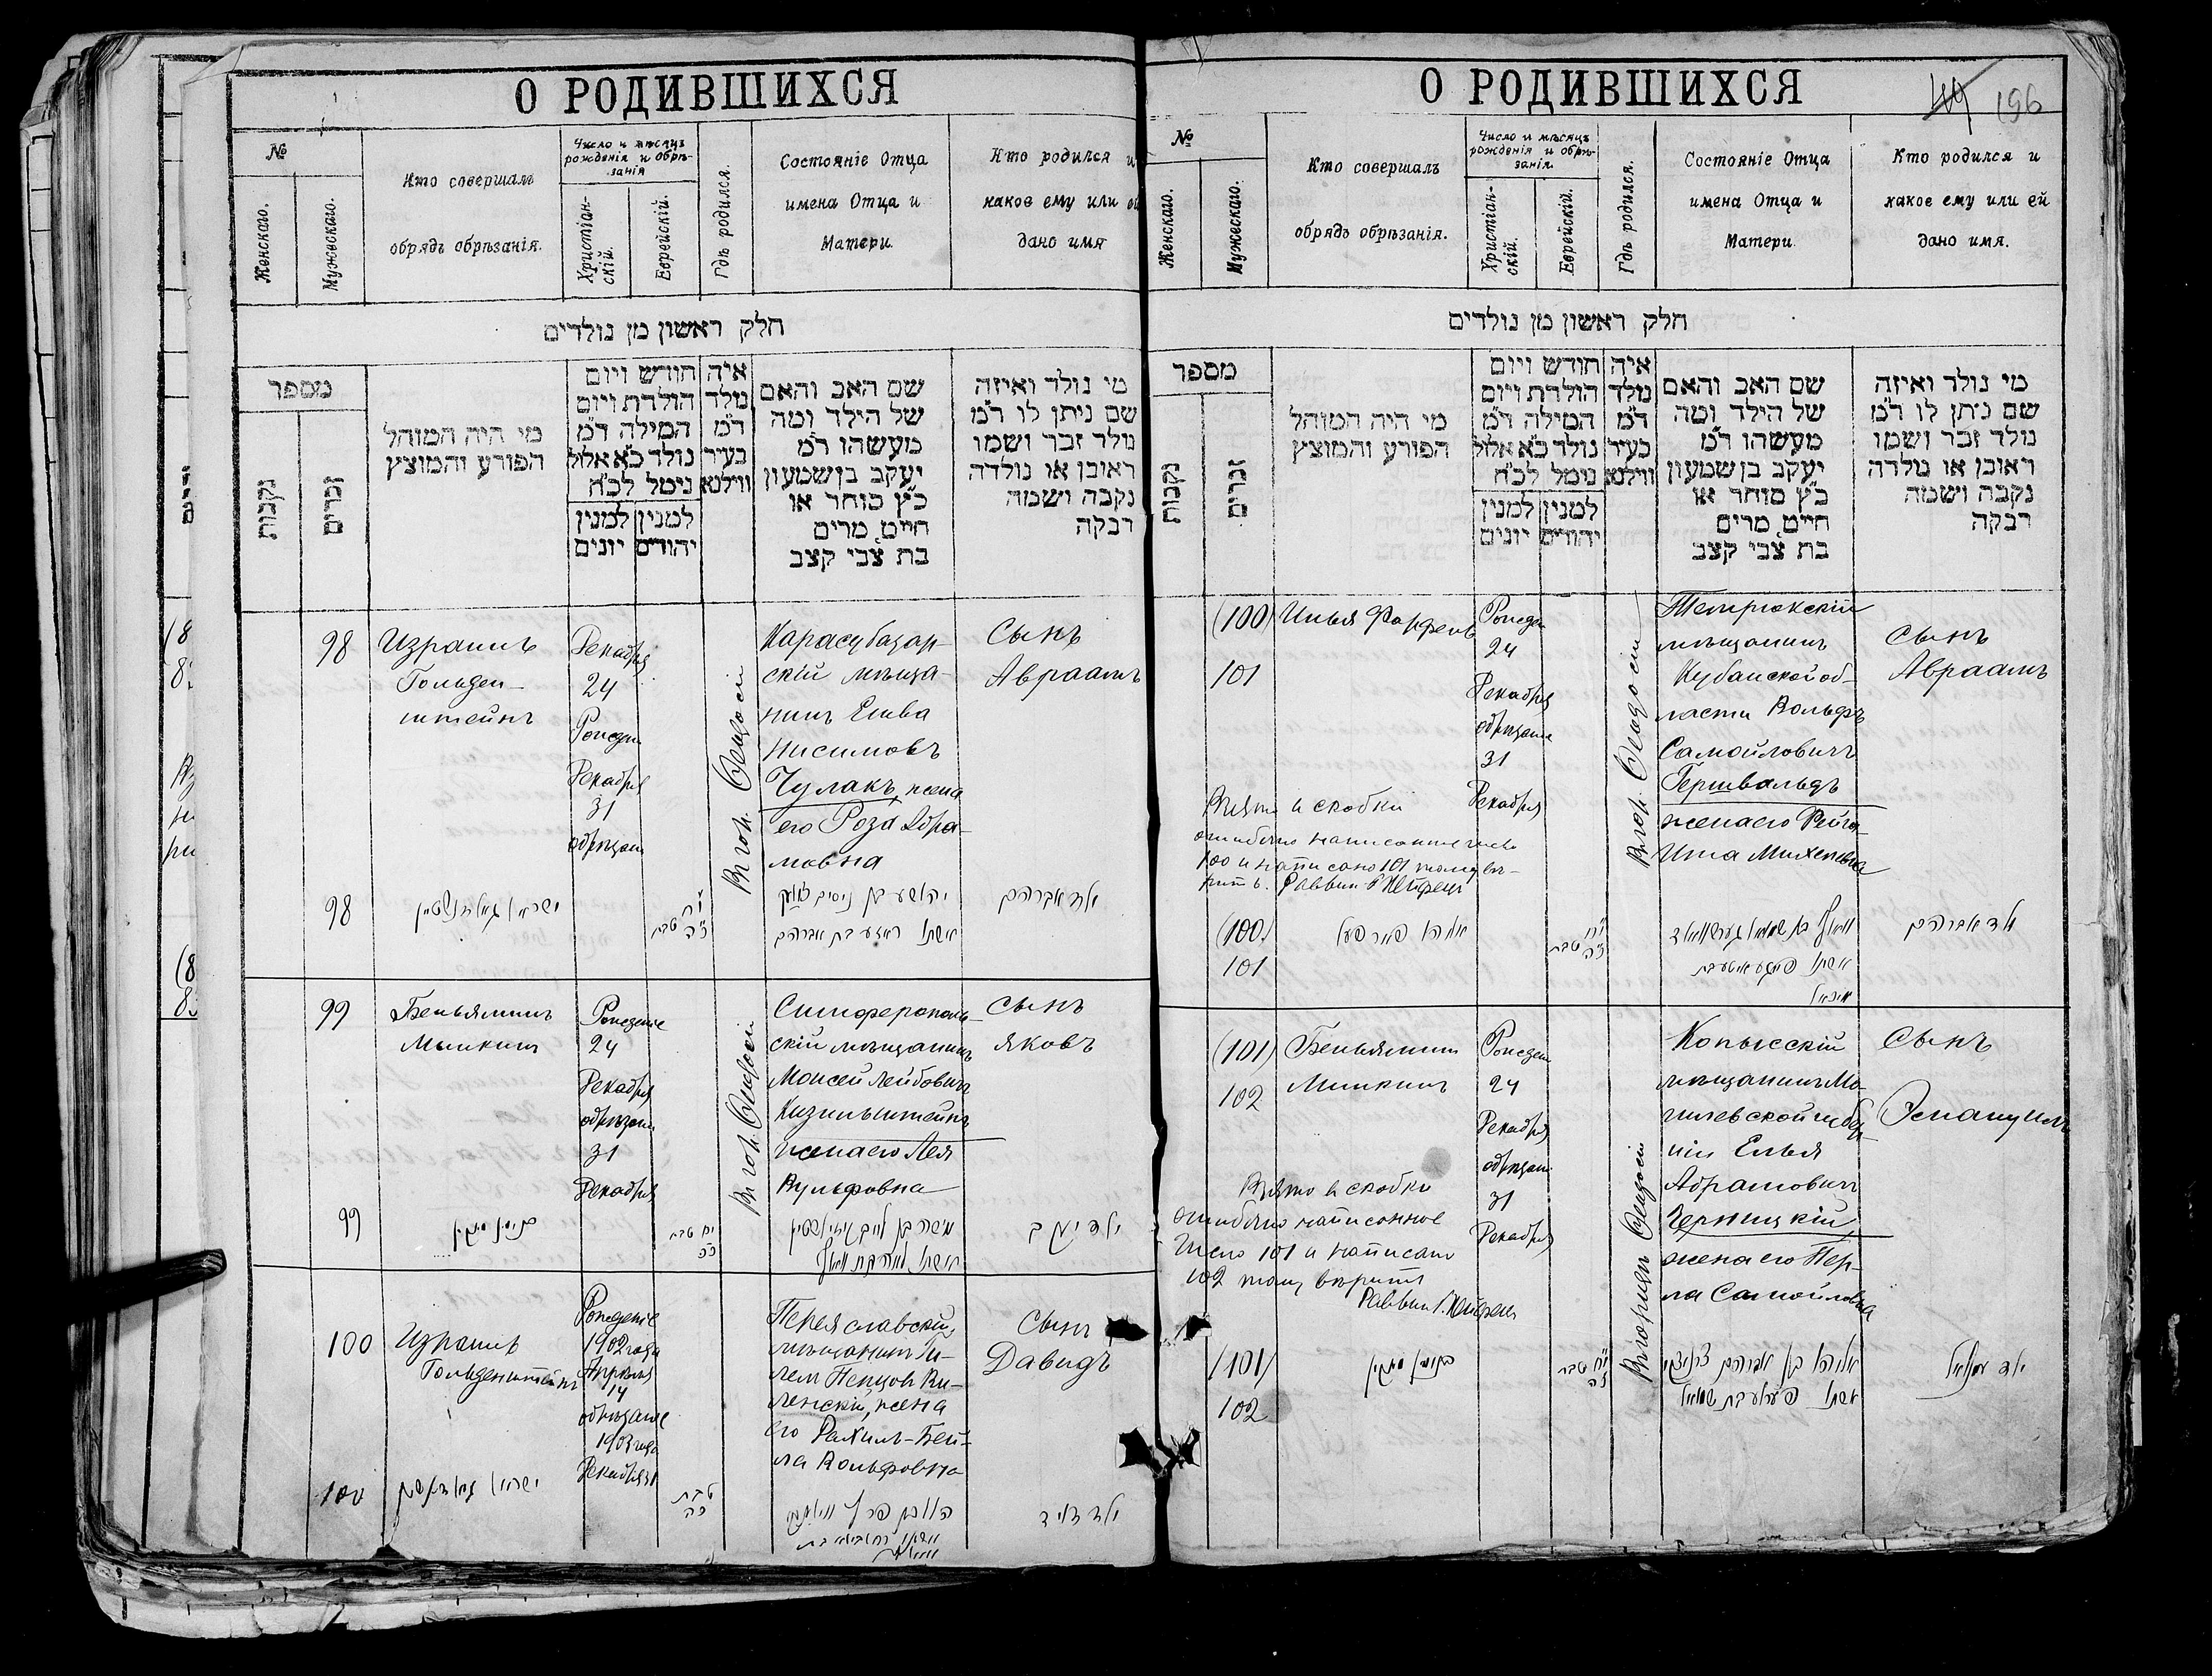 О РОДИВШИХСЯ
№
Женскаго.
Мужескаго.
Кто совершалъ
обрядъ обрѣзанія.
Число и мѣсяцъ
рожденія и обрѣ-
занія
Христіан-
скій.
Еврейскій.
Гдѣ родился.
Состояніе Отца
имена Отца и
Матери.
Кто родился и
какое ему или ей
дано имя
חלק ראשון מן נולדים
מספר
נקבות
זכרים
מי היה המוהל
הפורע והמוצץ
חודש ויום
הולדת ויום
המילה ד״מ
נולד כ״א אלול
נימל לכ״ח
למנין למנין
יהודים יונים
איה
נולד
ד״מ
בעיר
ווילנא
שם האב והאם
של הילד ומה
מעשהו ד״מ
יעקב בן שמעון
כ״ץ סוחר או
חייט מרים
בת צבי קצב
מי נולד ואיזה
שם ניתן לו ד״מ
נולד זכר ושמו
ראובן או נולדה
נקבה ושמה
רבקה
98
Израиль
Гольден-
штейнъ
Декабря
24
Рожден
Декабря
31
обрѣзан
Въ гор. Ѳеодосіи
Карасубазар-
скій мѣща-
нинъ Ешва
Нисимовъ
Чулакъ, жена
его Роза Абра-
мовна
Сынъ
Авраамъ
98
ישראל גאלדנשטיין
טבת
יהושע בן ניסים
אשתו ראזע בת אברהם
ילד אברהם
99
Беньяминъ
Мишкинъ
Рожденіе
24
Декабря
обрѣзан
31
Декабря
Въ гор. Ѳеодосіи
Симферополь-
скій мѣщанинъ
Моисей Лейбовичъ
Кизильштейнъ
жена его Лея
Вульфовна
сынъ
Яковъ
99
בנימין מישקין
יח טבת
כה
משה בן לייב קיזילשטיין
אשתו לאה בת וואלף
ילד יעקב
100
Израиль
Гольденштейнъ
Рожденіе
1902 года
Апрѣля
14
обрѣзаніе
1903 года
Декабря 31
Переяславскій
мѣщанинъ Ги-
лем Пейцов Ви-
ленскій, жена
его Рахиль-Бей-
ла Вольфовна
Сынъ
Давидъ
100
ישראל גאלדענשטיין
טבת
כה
ילד דויד
О РОДИВШИХСЯ
196
№
Женскаго.
Мужескаго.
Кто совершалъ
обрядъ обрѣзанія.
Число и мѣсяцъ
рожденія и обрѣ-
занія.
Христіан-
скій.
Еврейскій.
Гдѣ родился.
Состояніе Отца
имена Отца и
Матери
Кто родился и
какое ему или ей
дано имя.
חלק ראשון מן נולדים
מספר
נקבות
זכרים
מי היה המוהל
הפורע והמוצץ
חודש ויום
הולדת ויום
המילה ד״מ
נולד כ״א אלול
נימל לכ״ח
למנין למנין
יהודים יונים
איה
נולד
ד״מ
בעיר
ווילנא
שם האב והאם
של הילד ומה
מעשהו ד״מ
יעקב בן שמעון
כ״ץ סוחר או
חייט מרים
בת צבי קצב
מי נולד ואיזה
שם ניתן לו ד״מ
נולד זכר ושמו
ראובן או נולדה
נקבה ושמה
רבקה
(100)
101
Илья Фарфель
Рожден
24
Декабря
обрѣзаніе
31
Декабря
Въ гор. Ѳеодосіи
Темрюкскій
мѣщанинъ
Кубанской об-
ласти Вольфъ
Самойловичъ
Гершвальдъ
жена его Рейза-
Ита Михелевна
сынъ
Авраамъ
Взято въ скобки
ошибочно написанное число
100 и написано 101 тому вѣ-
рить. Раввинъ
(100)
101
אליהו פארפעל
יח טבת
כה
וואלף בן שמואל גערשוואלד
מיכאל
ילד אברהם
(101)
102
Беньяминъ
Мишкинъ
Рожден
24
Декабря
обрѣзан
31
Декабря
Въ городѣ Ѳеодосіи
Копысскій
мѣщанинъ Мо-
гилевской губер-
ніи Елья
Абрамовичъ
Черницкій
жена его Пер-
ла Самойловна
Сынъ
Эмануилъ
Взято въ скобки
ошибочно написанное
число 101 и написано
102 тому вѣрить
Раввинъ
(101)
102
בנימין מישקין
יח טבת
כה
אליהו בן אברהם צערניצקי
אשתו פערלע בת שמואל
ילד עמנואל